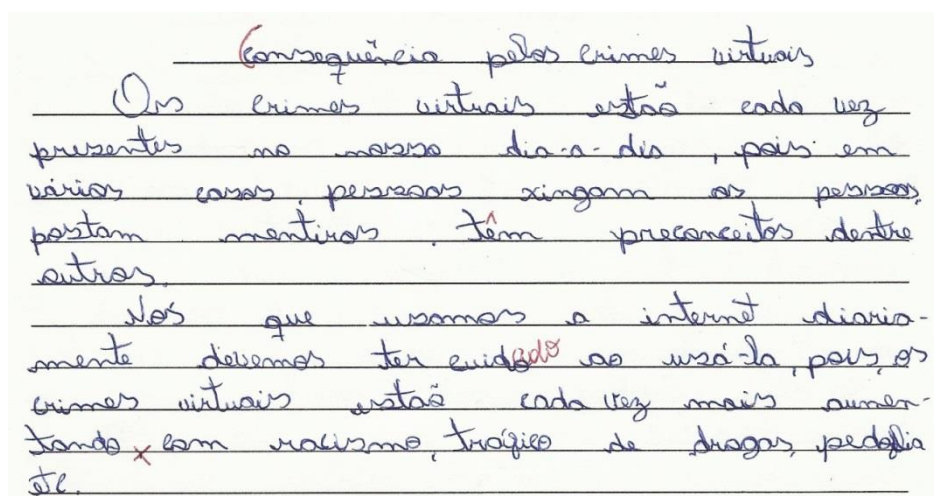 Consequência pelos crimes virtuais
Os crimes virtuais estão cada vez
presentes no nosso dia-a-dia, pois em
vários casos, pessoas xingam as pessoas,
postam mentiras, têm preconceitos dentre
outros.
Nós que usamos a internet diaria-
mente devemos ter cuidado ao usá-la, pois, os
crimes virtuais estão cada vez mais aumen-
tando x com racismo, tráfico de drogas, pedofilia
etc.